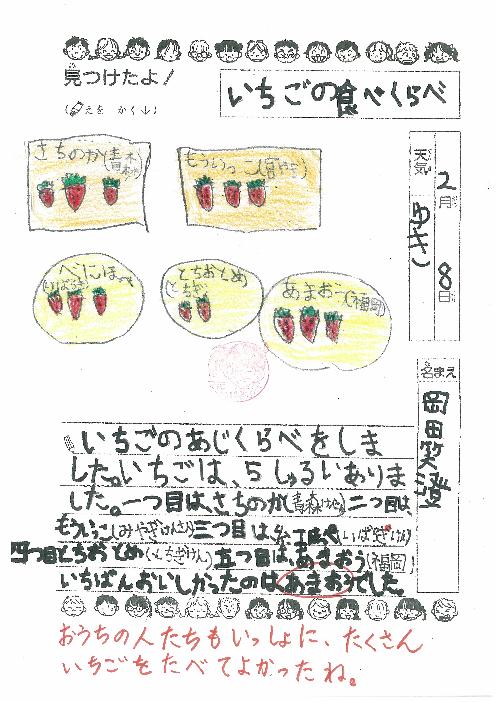 見つけたよ!
(えを かく↓)
いちごの食べくらべ
2月8日
天気 ゆき
名まえ 岡田笑澄
さちのか(青木
もういっこ(宮やき)
べにほっぺ
とちおとめ
(とちぎ)
あまおう(福岡)
いちごのあじくらべをしま
した。いちごは、5しゅるいありま
した。一つ目は、さちのか(青森けん)二つ目は、
もういっこ(みやぎけんさん)三つ目は(いばらきけん)
四つ目とちおとめ(とちぎけん)五つ目は、あまおう(福岡)
いちばんおいしかったのはあまおうでした。
おうちの人たちもいっしょに、たくさん
いちごをたべてよかったね。